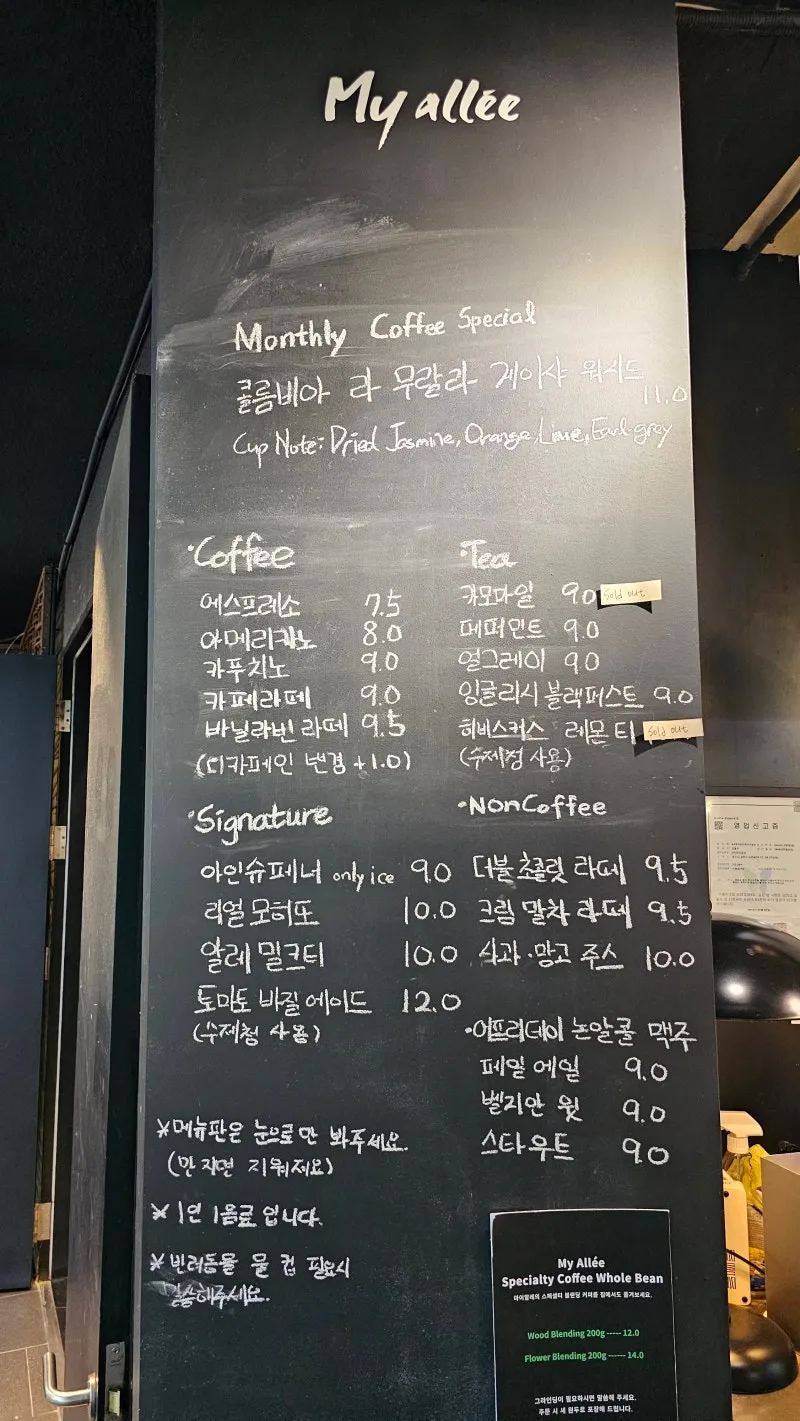 My allée
Monthly Coffee Special
콜롬비아 라 무랄라 게이샤 워시드
11.0
Cup Note: Dried Jasmine, Orange, Lime, Earl grey
·Coffee
에스프레소 7.5
아메리카노 8.0
카푸치노 9.0
카페라떼 9.0
바닐라빈 라떼 9.5
(디카페인 변경 +1.0)
·Tea
카모마일 9.0 Sold out
페퍼민트 9.0
얼그레이 9.0
잉글리시 블랙퍼스트 9.0
히비스커스 레몬 티 Sold out
(수제청 사용)
·Signature
아인슈페너 only ice 9.0
리얼 모히또 10.0
알레 밀크티 10.0
토마토 바질 에이드 12.0
(수제청 사용)
·NonCoffee
더블 초콜릿 라떼 9.5
크림 말차 라떼 9.5
사과·망고 주스 10.0
·어프리데이 논알콜 맥주
페일 에일 9.0
벨지안 윗 9.0
스타우트 9.0
※메뉴판은 눈으로만 봐주세요.
(만지면 지워져요)
※ 1인 1음료 입니다.
※ 반려동물 물 컵 필요시
말씀해주세요.
My Allée
Specialty Coffee Whole Bean
마이알레의 스페셜티 블렌딩 커피를 집에서도 즐겨보세요.
Wood Blending 200g ----- 12.0
Flower Blending 200g ------ 14.0
그라인딩이 필요하시면 말씀해 주세요.
주문 시 새 원두로 포장해 드립니다.
영업신고증